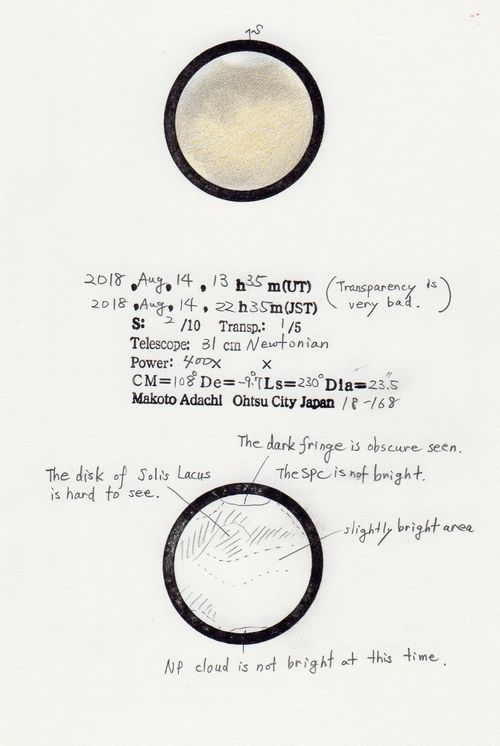 S
2018, Aug, 14, 13 h 35 m(UT) (Transparency is
very bad.)
2018, Aug, 14, 22 h 35 m(JST)
S: 2 /10 Transp.: 1 /5
Telescope: 31 cm Newtonian
Power: 400× ×
CM=108° De=-9.7° Ls=230° Dia=23.5"
Makoto Adachi Ohtsu City Japan 18-168
The dark fringe is obscure seen.
The SPC is not bright.
The disk of Solis Lacus
is hard to see.
slightly bright area
NP cloud is not bright at this time.